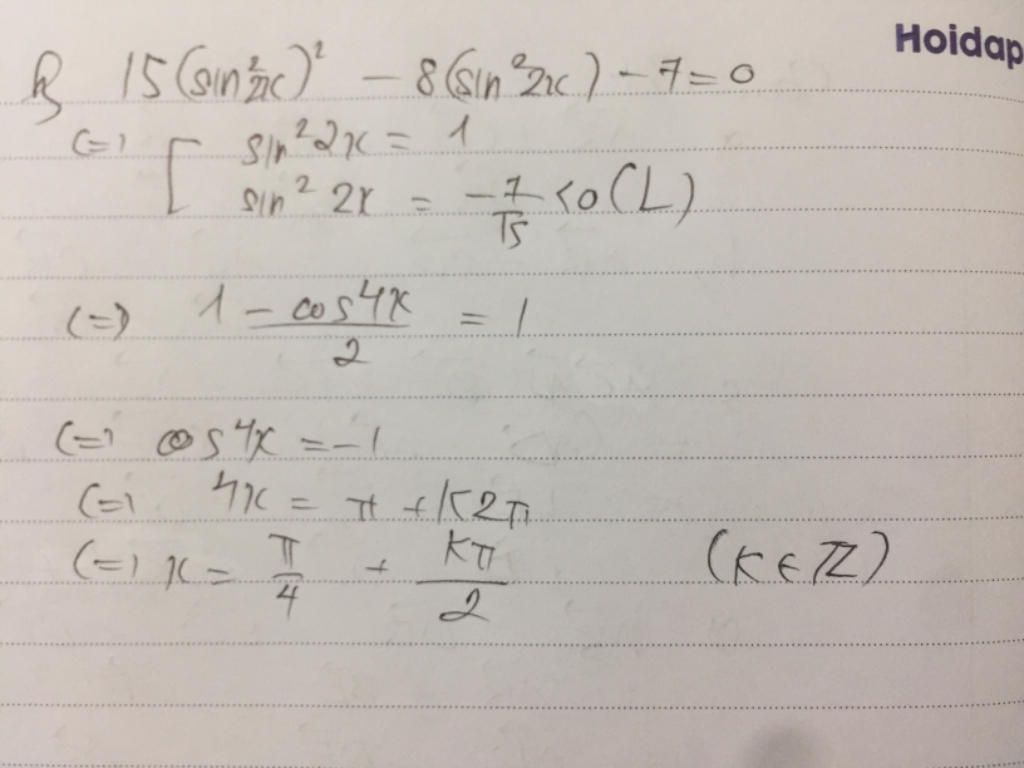 Hoidap
15(sin²2x)² - 8(sin²2x) - 7 = 0
(=) [ sin²2x = 1
sin²2x = -7/15 <0 (L)
(=) (1 - cos4x)/2 = 1
(=) cos4x = -1
(=) 4x = π + k2π
(=) x = π/4 + kπ/2 (k ∈ Z)